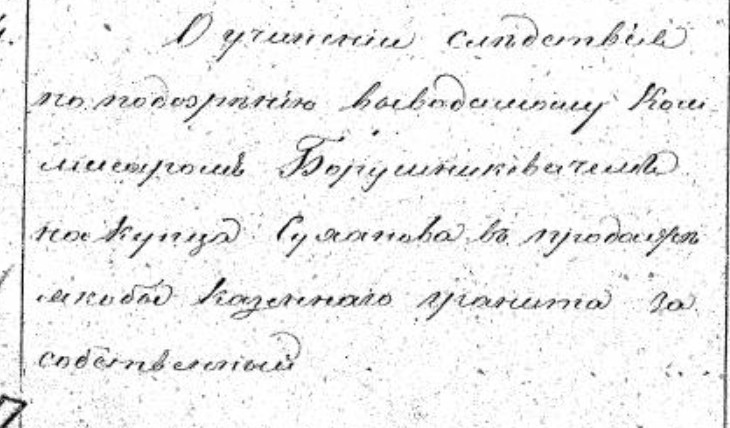 О учинении слѣдствія
по подозрѣнію выводимому Ком-
мисаромъ
на купца Суханова въ продажѣ
якобы казеннаго гранита за
собственный